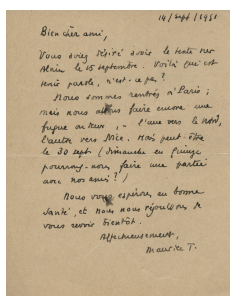 14/sept/1951
Bien cher ami,
Vous aviez désiré avoir le texte sur
Alain le 15 septembre. Voilà qui est
tenir parole, n'est-ce pas?
Nous sommes rentrés à Paris;
mais nous allons faire encore une
fugue ou deux, - l'une vers le Nord,
l'autre vers Nice. Mais peut-être
le 30 sept (dimanche en quinze)
pourrons-nous faire une partie
avec nos amis?
Nous vous espérons en bonne
santé, et nous nous réjouissons de
vous revoir bientôt.
Affectueusement,
Maurice T.